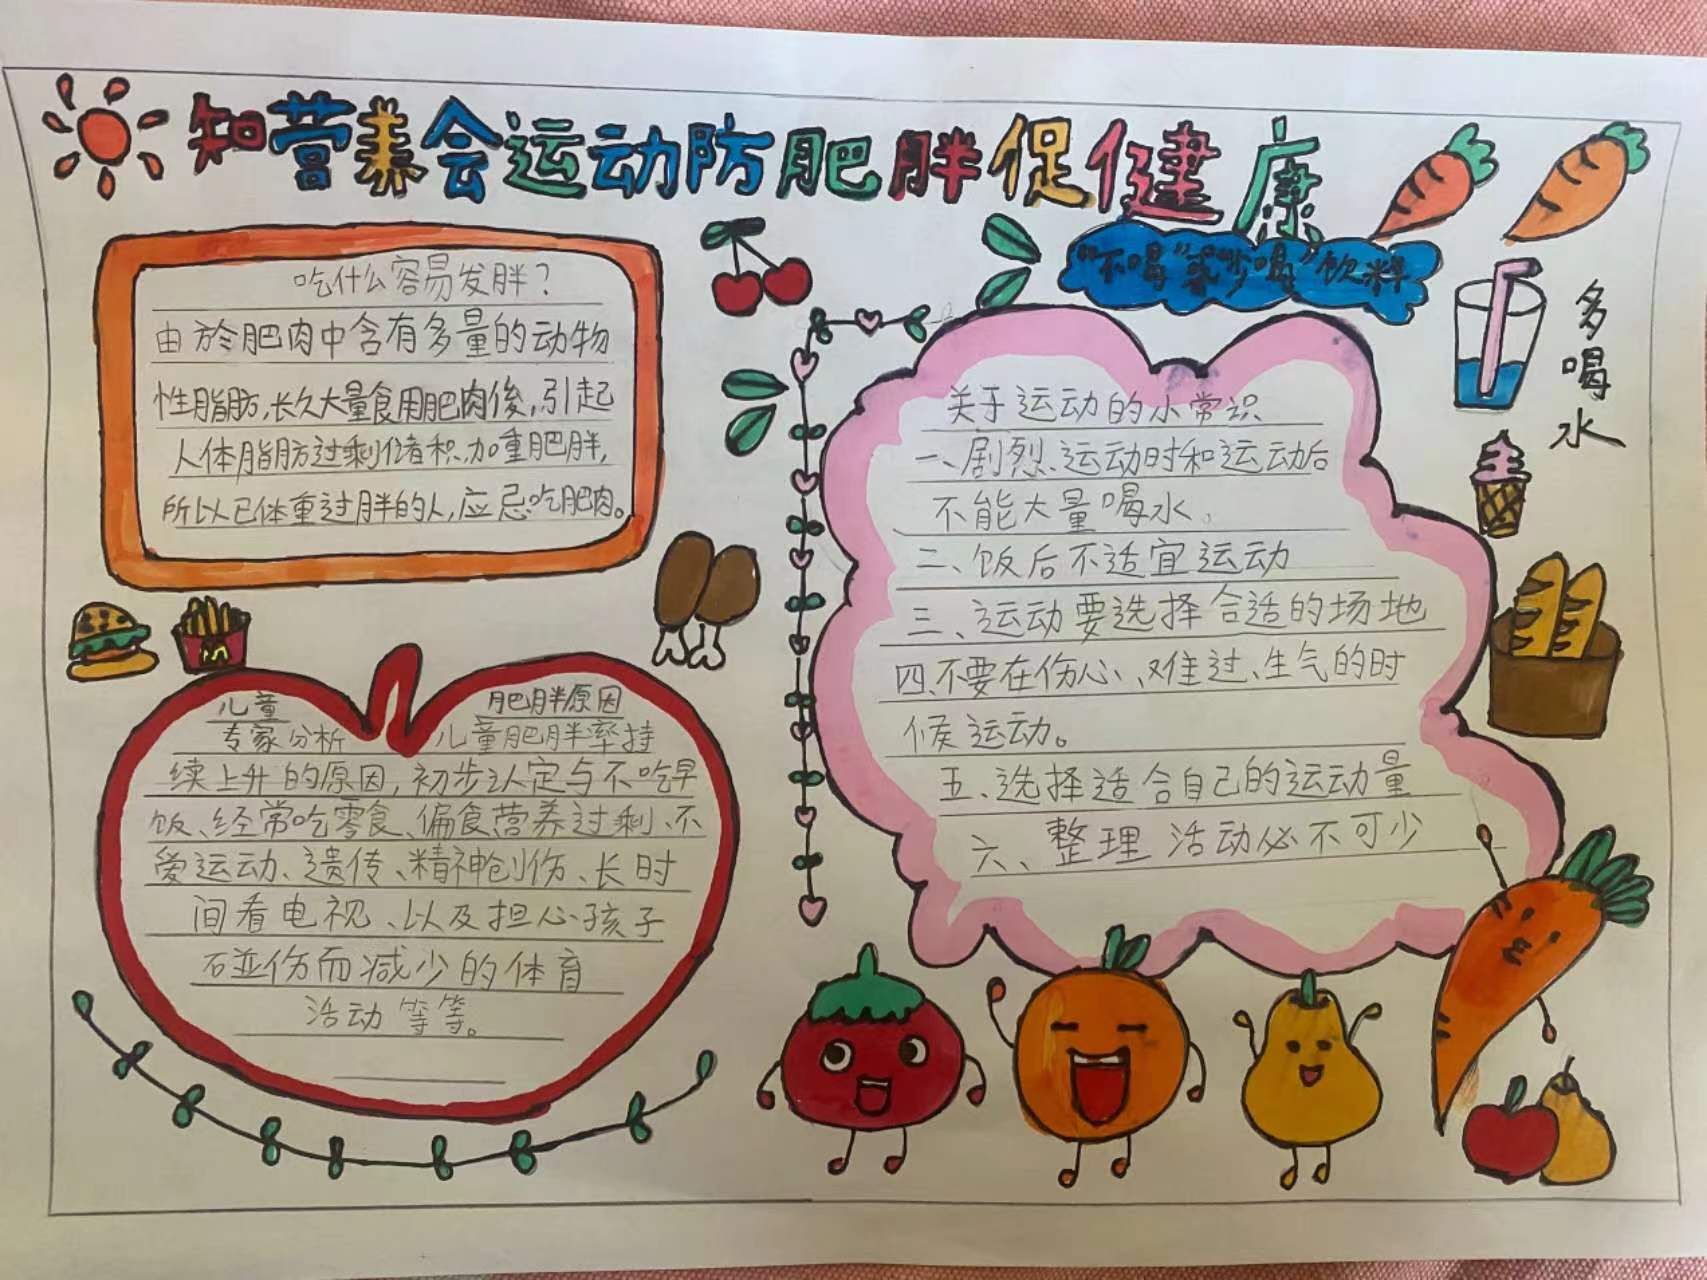 知营养会运动防肥胖促健康
"不喝""少喝"饮料
多喝水
吃什么容易发胖?
由於肥肉中含有多量的动物
性脂肪,长久大量食用肥肉後,引起
人体脂肪过剩储积,加重肥胖,
所以已体重过胖的人,应忌吃肥肉。
儿童 肥胖原因
专家分析 儿童肥胖率持
续上升的原因,初步认定与不吃早
饭、经常吃零食、偏食营养过剩、不
爱运动、遗传、精神创伤、长时
间看电视、以及担心孩子
碰伤而减少的体育
活动等等。
关于运动的小常识
一、剧烈运动时和运动后
不能大量喝水、
二、饭后不适宜运动
三、运动要选择合适的场地
四、不要在伤心、难过、生气的时
候运动。
五、选择适合自己的运动量
六、整理活动必不可少